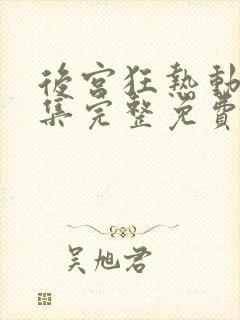 後宮狂熱動
集完整免費
吴旭君